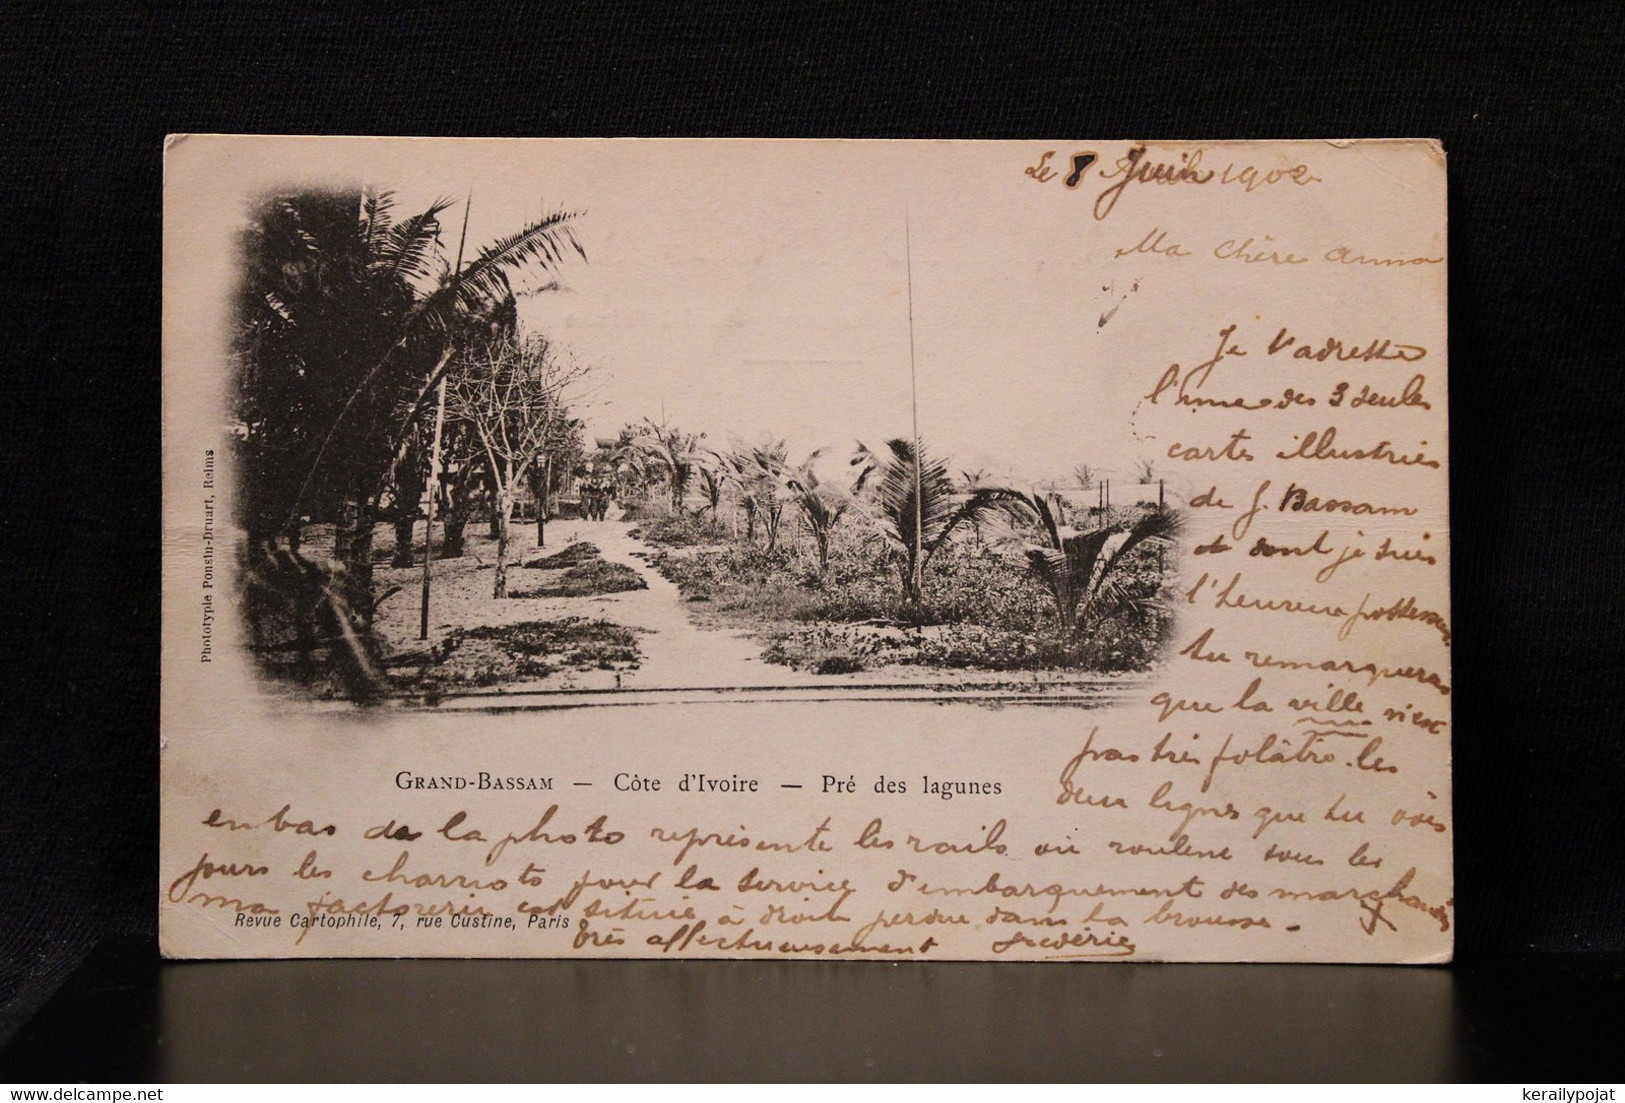 Le 8 Juin 1902
Ma Chère Anna
Je t'adresse
l'une des 3 seules
cartes illustrées
de G. Bassam
et dont je suis
l'heureux possesseur
tu remarqueras
que la ville n'est
pas très folâtre. les
deux lignes que tu vois
en bas de la photo représente les rails où roulent tous les
jours les charriots pour la service d'embarquement des marchandises
ma factorerie est située à droite perdue dans la brousse.
très affectueusement Frédéric
Phototypie Ponsin-Druart, Reims
GRAND-BASSAM — Côte d'Ivoire — Pré des lagunes
Revue Cartophile, 7, rue Custine, Paris
delcampe.net
kerailypojat